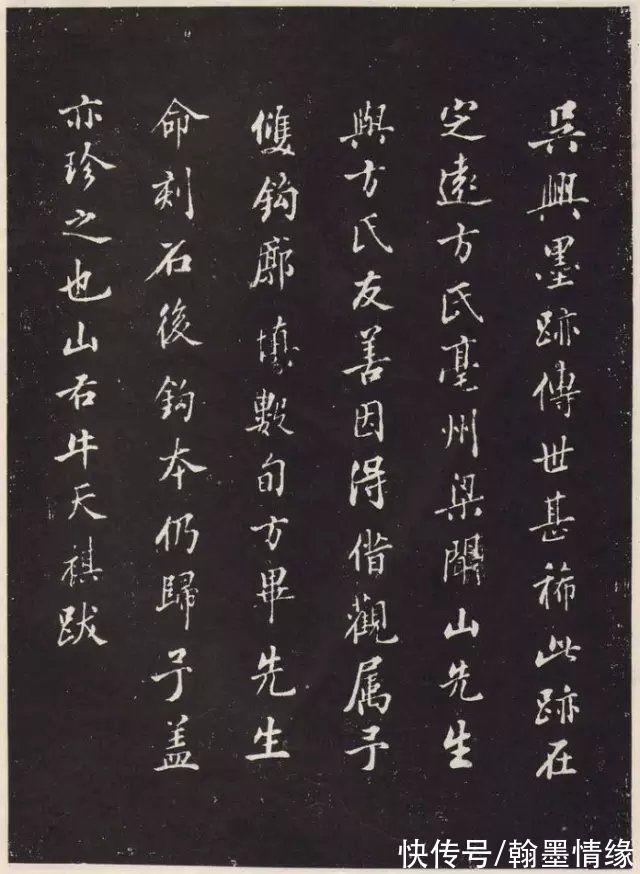 吳興墨跡傳世甚稀此跡在
定遠方氏亳州梁聞山先生
與方氏友善因得借觀属予
雙鈎廓填數旬方畢先生
命刻石後鈎本仍歸予盖
亦珍之也山右牛天祺跋
快传号/翰墨情缘